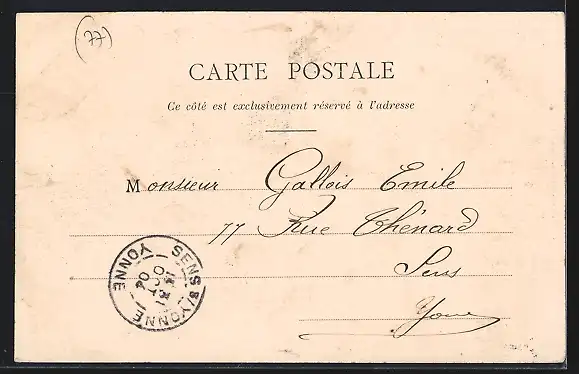 (77)
CARTE POSTALE
Ce côté est exclusivement réservé à l'adresse
Monsieur Gallois Emile
77 Rue Thénard
Sens
Yonne
SENS S/YONNE
YONNE